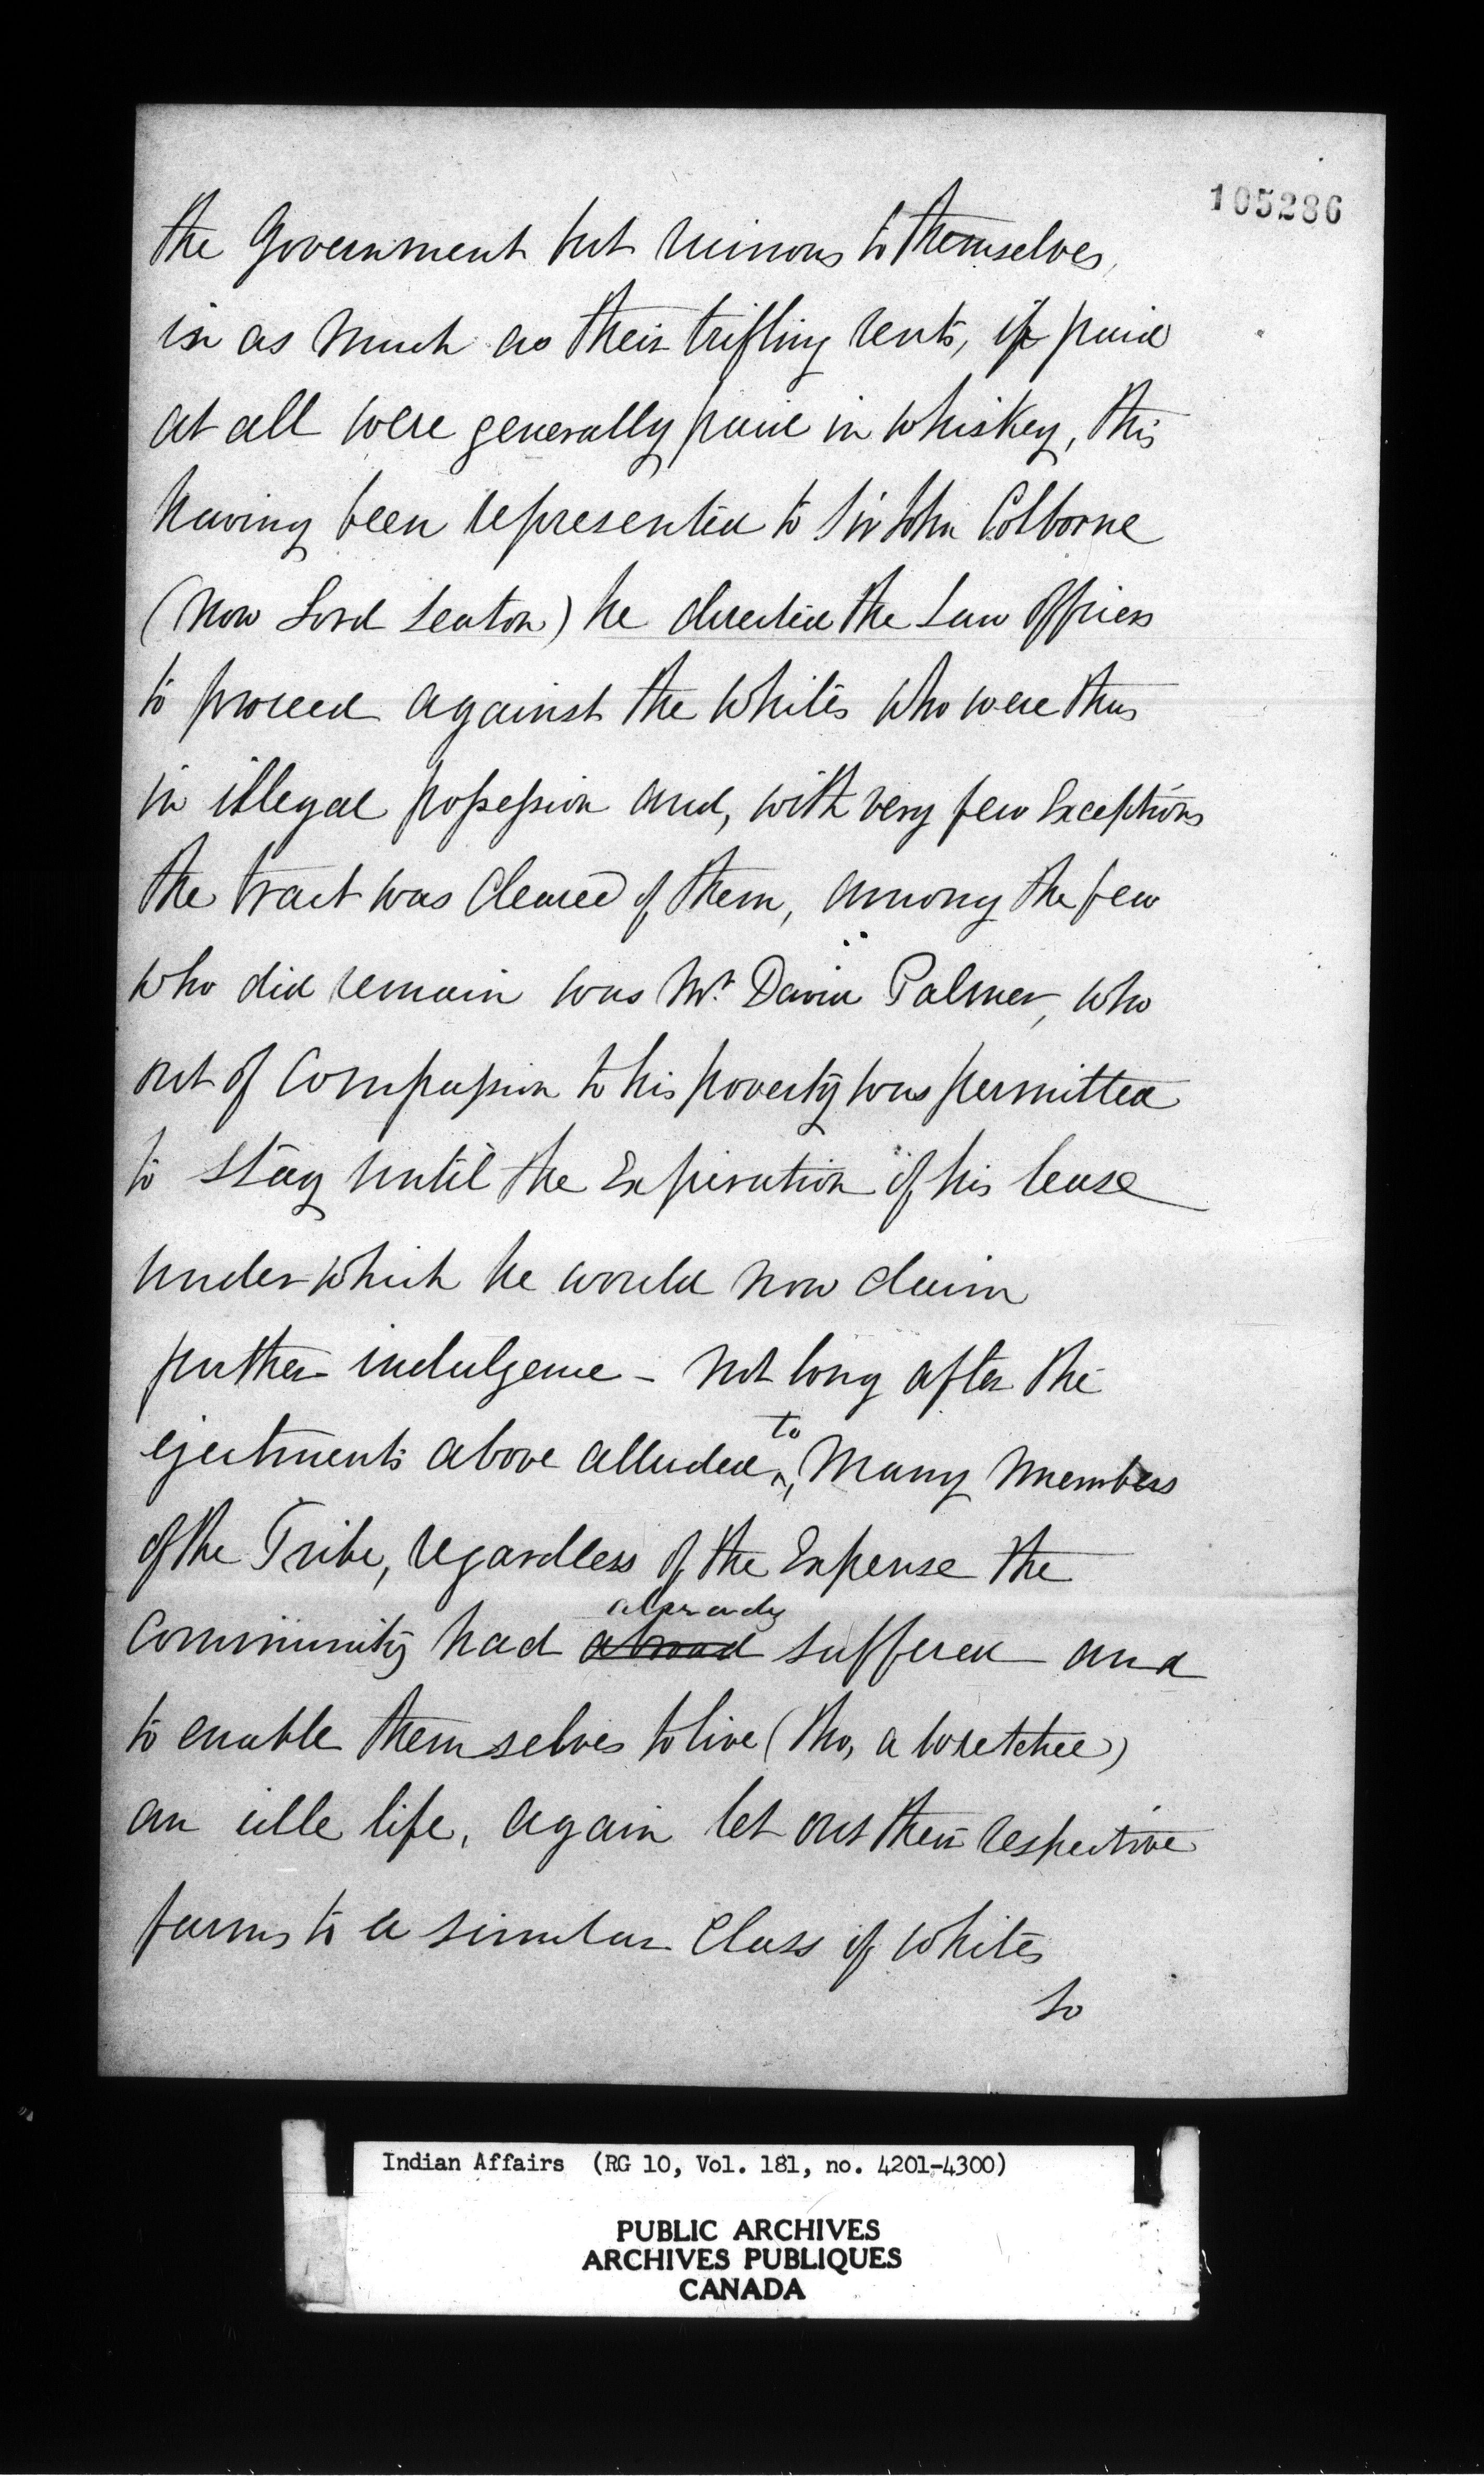 105286
the Government but ruinous to themselves,
in as much as their trifling rents, if paid
at all were generally paid in whiskey, this
having been represented to Sir John Colborne
(now Lord Seaton) he directed the Law Officers
to proceed against the Whites who were thus
in illegal possession and, with very few Exceptions
the tract was cleared of them, among the few
who did remain was Mr. David Palmer, who
out of Compassion to his poverty was permitted
to stay until the Expiration of his lease
under which he would now claim
further indulgence - not long after the
ejectments above alluded to, Many Members
of the Tribe, regardless of the Expense the
Community had abroad already suffered and
to enable themselves to live (tho, a wretched)
an idle life, again let out their respective
farms to a similar Class of Whites
So
Indian Affairs (RG 10, Vol. 181, no. 4201-4300)
PUBLIC ARCHIVES
ARCHIVES PUBLIQUES
CANADA